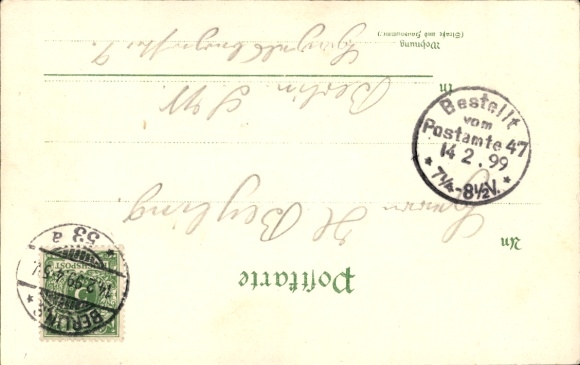 Postkarte
An
Herrn H Beyling.
in
Berlin S.W.
Wohnung
(Straße und Hausnummer)
Bestellt
vom
Postamte 47
14 2. 99
* 7¼-8½V. *
BERLIN S
14.2.99. 4-5
* 53 a
REICHSPOST
5